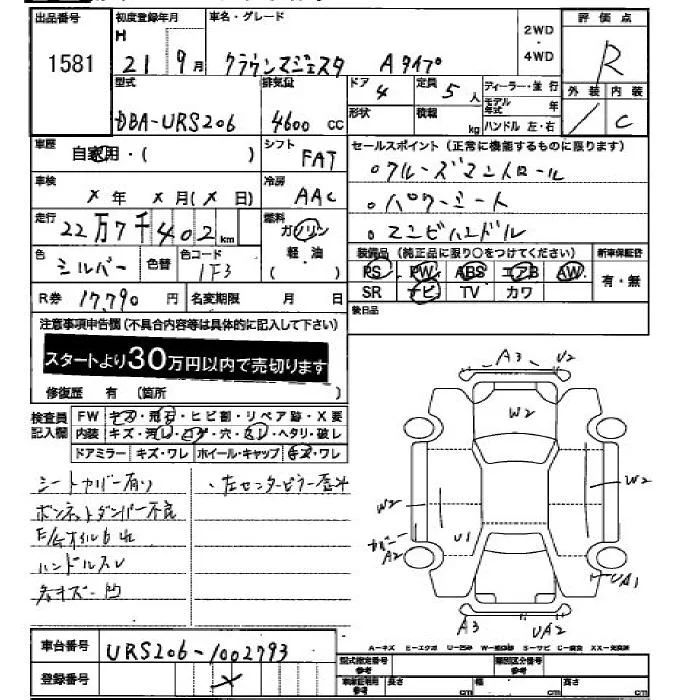 出品番号 初度登録年月 車名・グレード 2WD・4WD 評価点
1581 H 21 9月 クラウンマジェスタ Aタイプ R
型式 排気量 ドア 4 定員 5人 ディーラー・並行 外装 内装
DBA-URS206 4600 cc 形状 積載 kg モデル年式 年 ハンドル 左・右 / C
車歴 自家用・( ) シフト FAT セールスポイント(正常に機能するものに限ります)
車検 X年 X月(X日) 冷房 AAC 。クルーズコントロール
。パワーシート
走行 22万7千402km 燃料 ガソリン・軽・油( ) 。コンビハンドル
色 シルバー 色替 色コード 1F3 装備品(純正品に限り○をつけてください) 新車保証書
PS PW ABS エアB AW 有・無
R券 17,790円 名変期限 月 日 SR ナビ TV カワ
後日品
注意事項申告欄(不具合内容等は具体的に記入して下さい)
スタートより30万円以内で売切ります
修復歴 有(箇所 )
検査員記入欄 FW キズ・飛石・ヒビ割・リペア跡・X要
内装 キズ・汚レ・コゲ・穴・スレ・ヘタリ・破レ
ドアミラー キズ・ワレ ホイール・キャップ キズ・ワレ
シートカバー有り 、左センターピラー歪み
ボンネットダンパー不良
ハンドルスレ
小キズ・凹
A3 U2
W2
W2 W2
U1
カバー A2 UA1
A3 U2
A-キズ E-エクボ U-凹み W-補修跡 S-サビ C-腐食 XX-交換済
車台番号 URS206-1002793 型式指定番号 参考 類別区分番号 参考
登録番号 X 車庫証明用 参考 長さ cm 幅 cm 高さ cm